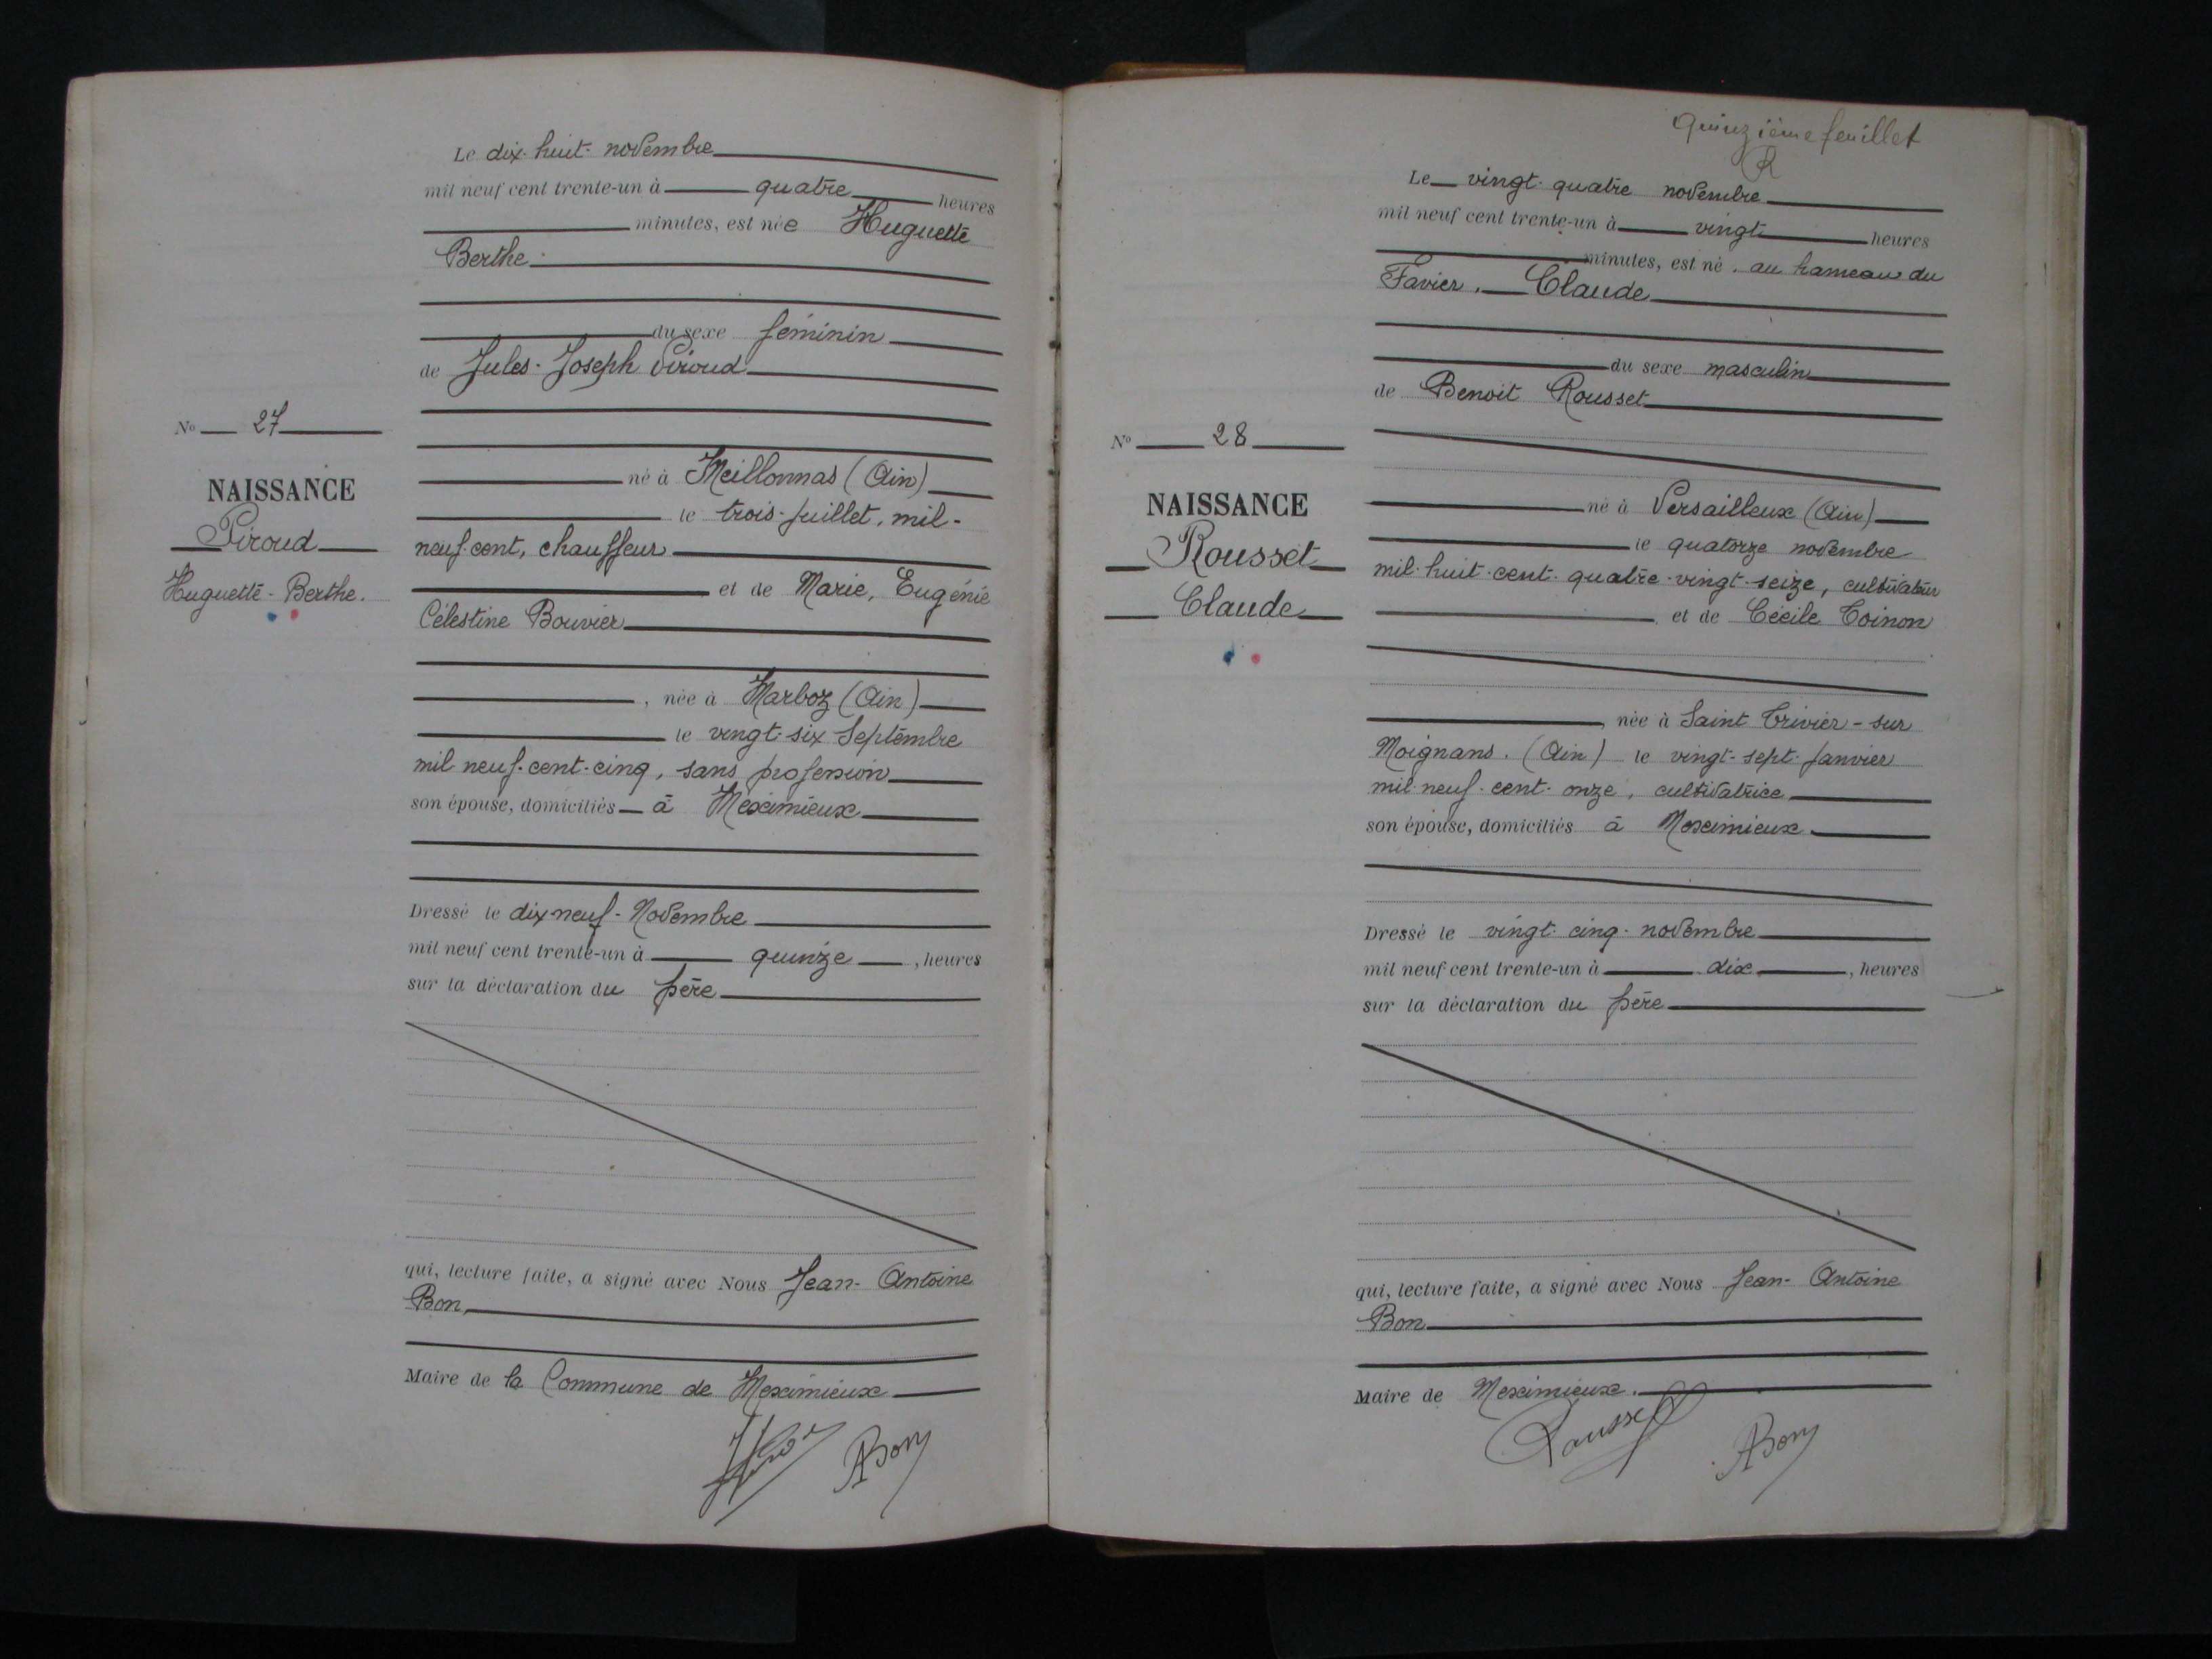 Le dix-huit-novembre
mil neuf cent trente-un à quatre heures
minutes, est née Huguette
Berthe
du sexe féminin
de Jules-Joseph Piroud
né à Meillonnas (Ain)
le trois-juillet, mil-
neuf-cent, chauffeur
et de Marie, Eugénie
Célestine Bouvier
, née à Marboz (Ain)
le vingt-six Septembre
mil neuf-cent-cinq, sans profession
son épouse, domiciliés à Meximieux
Dressé le dix-neuf-Novembre
mil neuf cent trente-un à quinze, heures
sur la déclaration du père
qui, lecture faite, a signé avec Nous Jean-Antoine
Bon,
Maire de la Commune de Meximieux
ABon
No 27
NAISSANCE
Piroud
Huguette-Berthe.
quinzième feuillet
R
Le vingt-quatre novembre
mil neuf cent trente-un à vingt heures
minutes, est né, au hameau du
Favier, Claude
du sexe masculin
de Benoit Rousset
né à Versailleux (Ain)
le quatorze novembre
mil-huit-cent-quatre-vingt-seize, cultivateur
et de Cécile Toinon
, née à Saint Trivier-sur
Moignans. (Ain) le vingt-sept-janvier
mil-neuf-cent-onze, cultivatrice
son épouse, domiciliés à Meximieux
Dressé le vingt-cinq-novembre
mil neuf cent trente-un à dix, heures
sur la déclaration du père
qui, lecture faite, a signé avec Nous Jean-Antoine
Bon
Maire de Meximieux.
Rousset ABon
No 28
NAISSANCE
Rousset
Claude